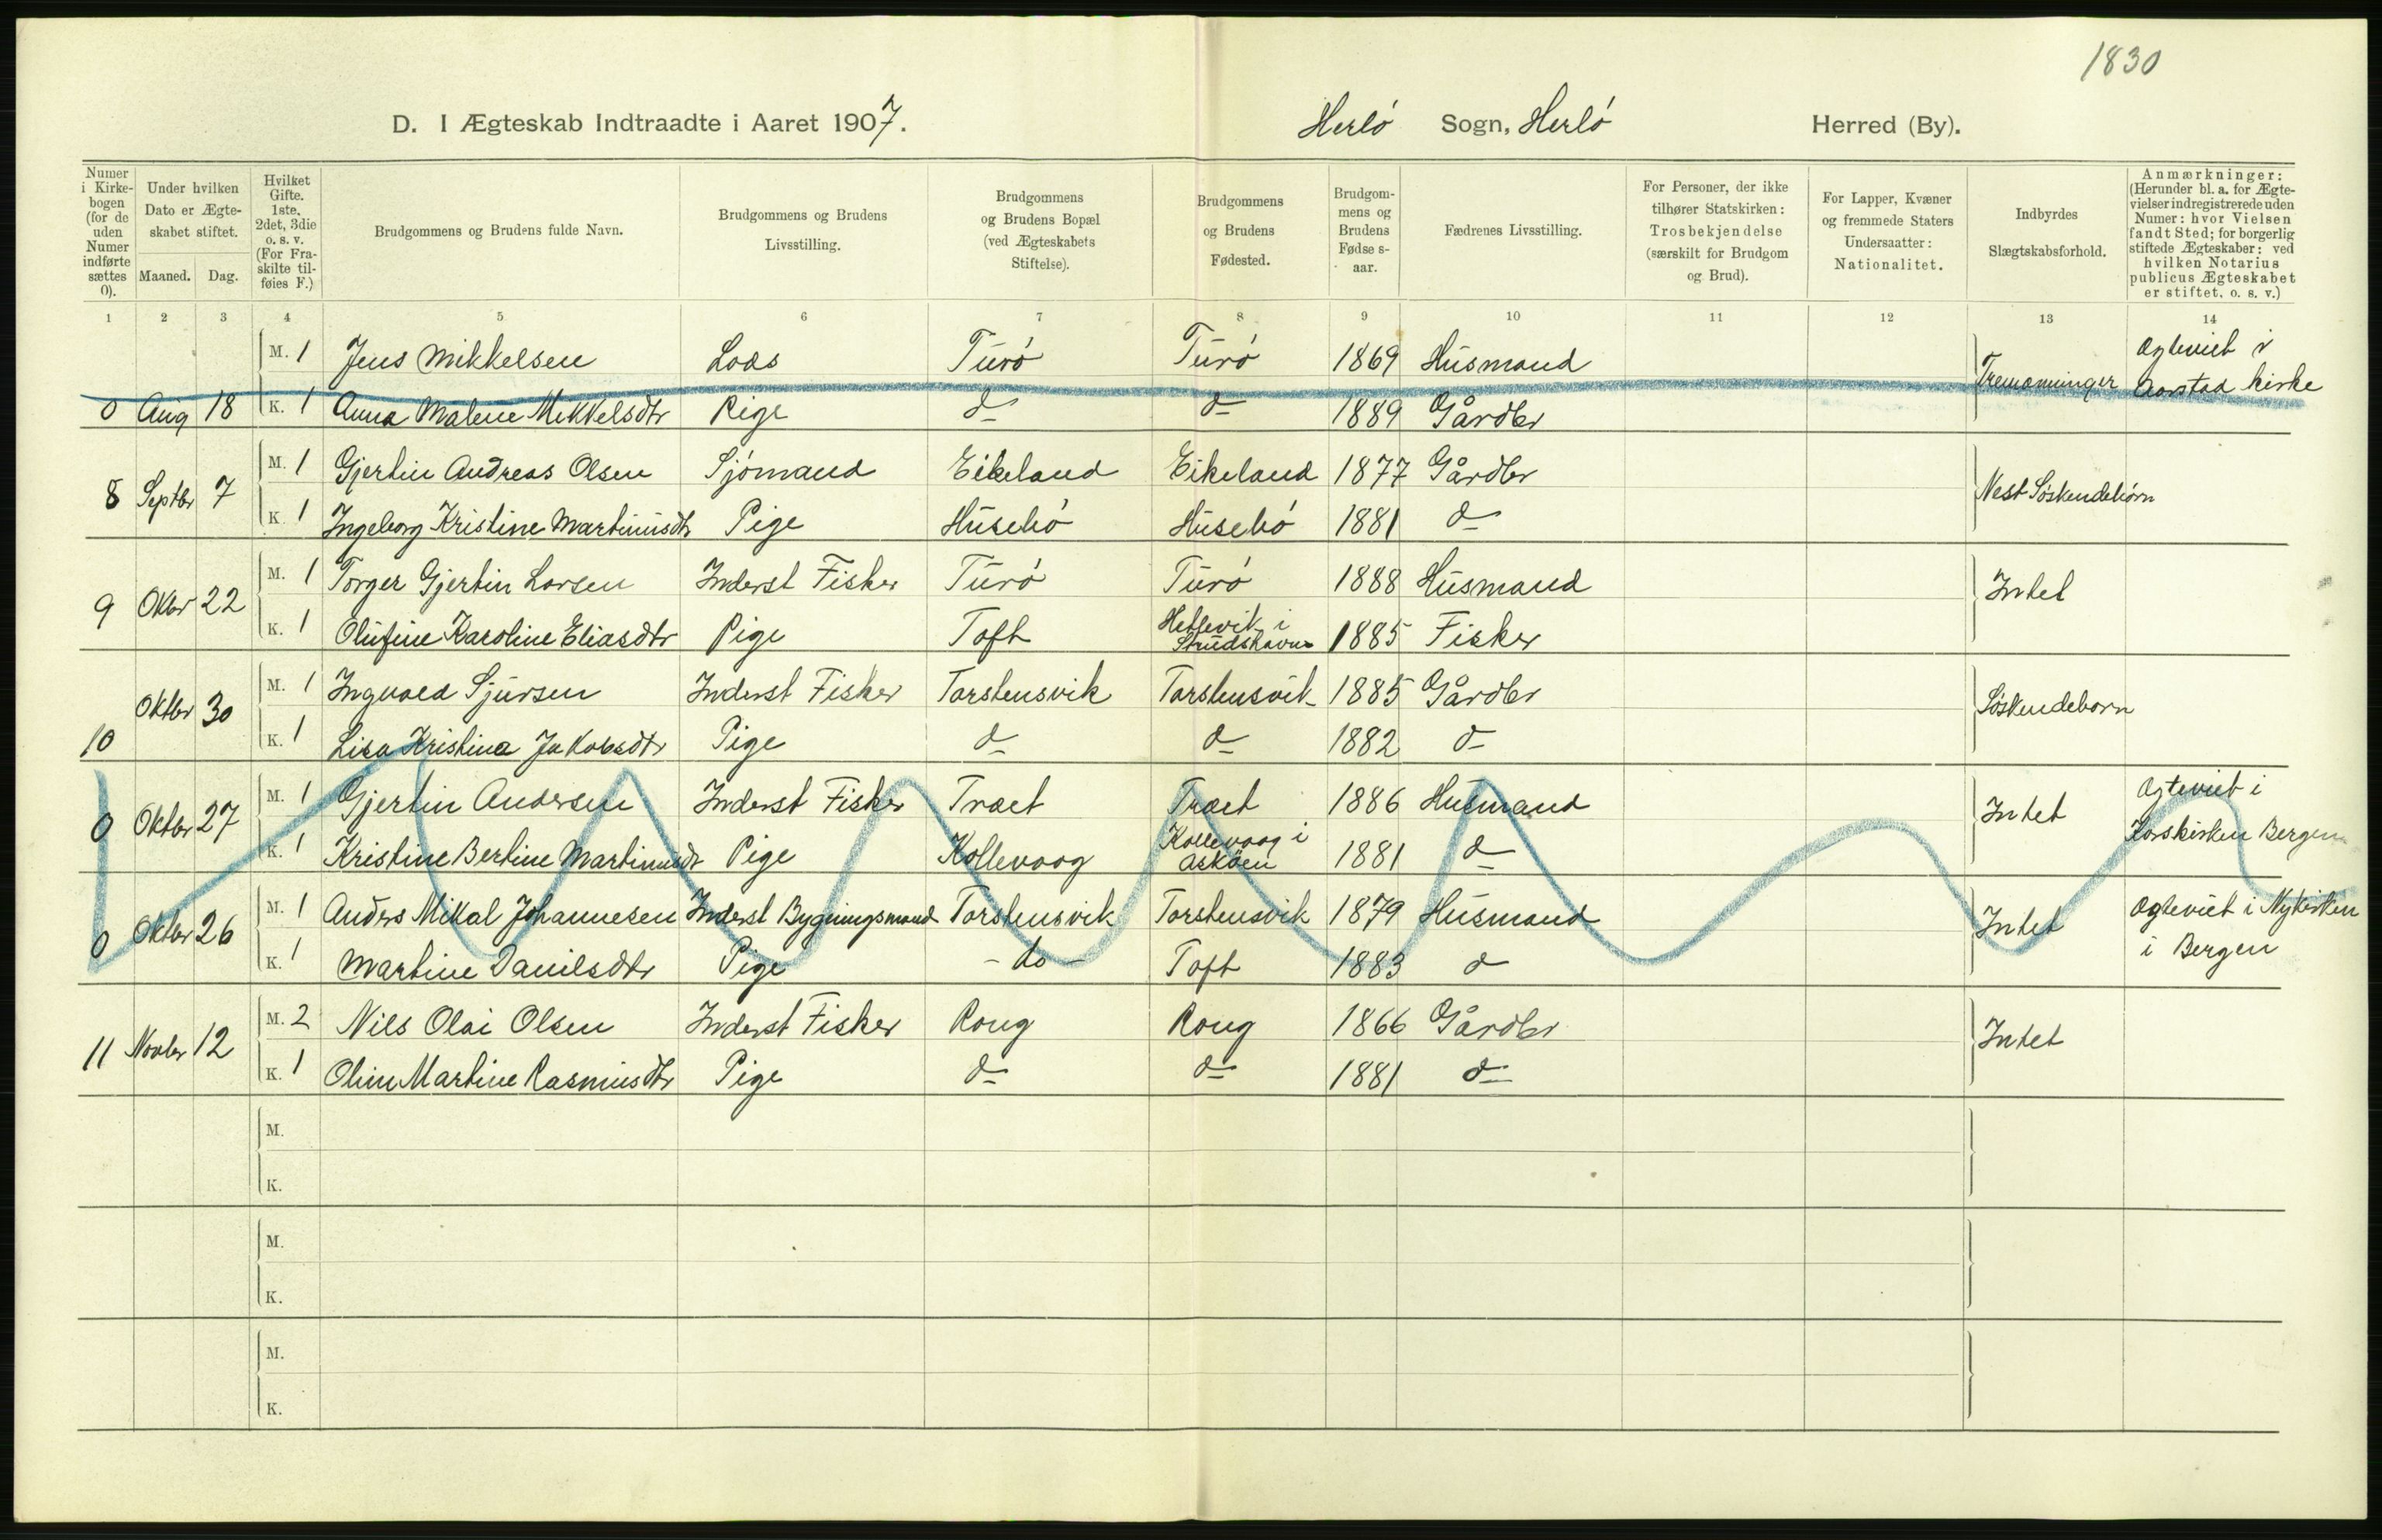 1830
D. I Ægteskab Indtraadte i Aaret 1907. Herló Sogn, Herló Herred (By).
Numer i Kirkebogen (for de uden Numer indførte sættes 0). Under hvilken Dato er Ægteskabet stiftet. Maaned. Dag. Hvilket Gifte. 1ste, 2det, 3die o. s. v. (For Fraskilte tilføies F.) Brudgommens og Brudens fulde Navn. Brudgommens og Brudens Livsstilling. Brudgommens og Brudens Bopæl (ved Ægteskabets Stiftelse). Brudgommens og Brudens Fødested. Brudgommens og Brudens Fødse s-aar. Fædrenes Livsstilling. For Personer, der ikke tilhører Statskirken: Trosbekjendelse (særskilt for Brudgom og Brud). For Lapper, Kvæner og fremmede Staters Undersaatter: Nationalitet. Indbyrdes Slægtskabsforhold. Anmærkninger: (Herunder bl. a. for Ægtevielser indregistrerede uden Numer: hvor Vielsen fandt Sted; for borgerlig stiftede Ægteskaber: ved hvilken Notarius publicus Ægteskabet er stiftet, o. s. v.)
1 2 3 4 5 6 7 8 9 10 11 12 13 14
M. 1 Jens Mikkelsen Lods Turó Turó 1869 Húsmand Tremænninger Ægteviet i Aarstad kirke
0 Aug 18 K. 1 Anna Malene Mikkelsdtr Pige d– d– 1889 Gårdbr
8 Septbr 7 M. 1 Gjertin Andreas Olsen Sjómand Eikeland Eikeland 1877 Gårdbr Nest Søskendebórn
K. 1 Ingeborg Kristine Martinusdtr Pige Húsebó Húsebó 1881 d–
9 Oktbr 22 M. 1 Torger Gjertin Larsen Inderst Fisker Turó Turó 1888 Húsmand Intet
K. 1 Olufine Karoline Eliasdtr Pige Toft Hetlevik i Strudshavn 1885 Fisker
10 Oktbr 30 M. 1 Ingvald Sjursen Inderst Fisker Torstensvik Torstensvik 1885 Gårdbr Søskendeborn
K. 1 Lisa Kristina Jakobsdtr Pige d– d– 1882 d–
0 Oktbr 27 M. 1 Gjertin Andersen Inderst Fisker Træet Træet 1886 Húsmand Intet Ægteviet i Korskirken Bergen
K. 1 Kristine Bertine Martinusdtr Pige Kollevaag Kollevaag i Askóen 1881 d–
0 Oktbr 26 M. 1 Anders Mikal Johannesen Inderst Bygningsmand Torstensvik Torstensvik 1879 Húsmand Intet Ægteviet i Nykirken i Bergen
K. 1 Martine Danilsdtr Pige – do – Toft 1883 d–
11 Novbr 12 M. 2 Nils Olai Olsen Inderst Fisker Rong Rong 1866 Gårdbr Intet
K. 1 Oline Martine Rasmusdtr Pige d– d– 1881 d–
M.
K.
M.
K.
M.
K.